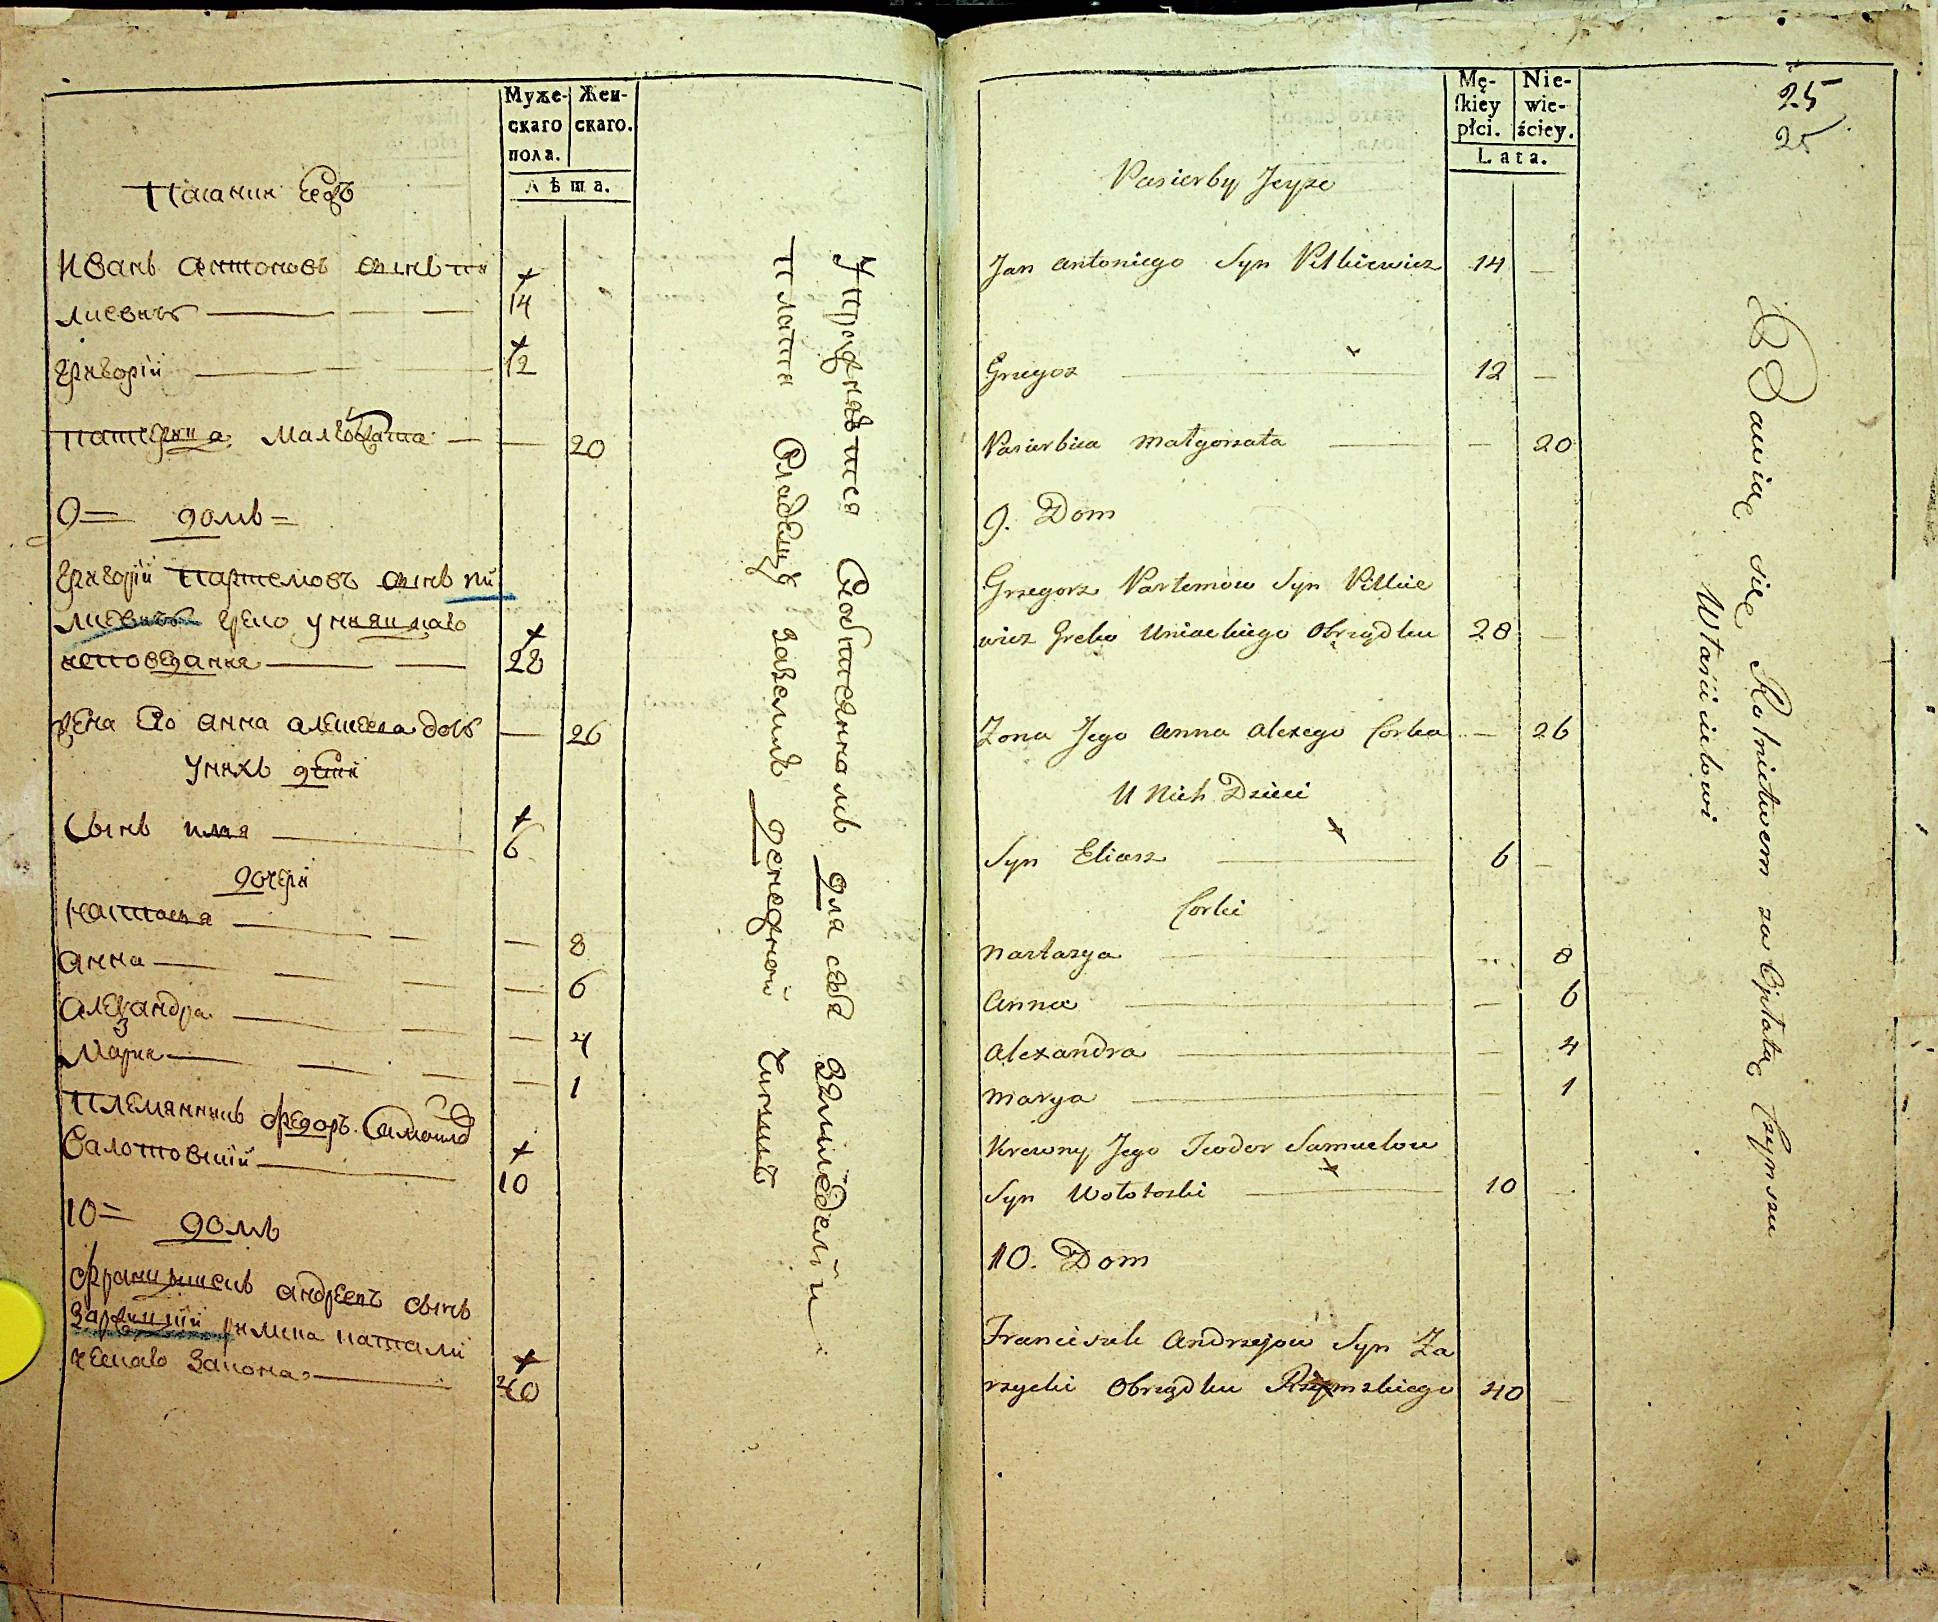 Муже-
скаго
пола.
Жен-
скаго.
Лѣта.
Иванъ Антоновъ сынъ Пи
лиевичъ
14
Григорий
12
Малгората
20
9 = домъ =
Григорий Партемовъ сынъ Пи
лиевичъ греко униацкаго
исповедания
28
жена его Анна Алексеева дочь
26
У нихъ дети
Сынъ илия
6
дочери
настасия
8
анна
6
Александра
4
Мария
1
Племянникъ Федоръ Самойлов
Валотовский
10
10 = домъ
Францишекъ Андреевъ сынъ
Заржицкий римско католи
ческаго закона
40
Упражняется собственномъ для себя земледелии
плати владелцу заземлю денежной чиншъ
Mę-
skiey
płci.
Nie-
wie-
ściey.
Lata.
25
25
Pasierby Jeyże
Jan Antoniego Syn Pilkiewicz 14
Grzegorz 12
Pasierbica Małgorzata 20
9. Dom
Grzegorz Partemow Syn Pilkie
wicz Greko Uniackiego Obrządku 28
Żona Jego Anna Alexego Corka 26
U Nich Dzieci
Syn Eliasz 6
Corki
Nastazya 8
Anna 6
Alexandra 4
Marya 1
Krewny Jego Teodor Samuelow
Syn Wołotoski 10
10. Dom
Franciszek Andrzejow Syn Za
rzycki Obrządku Rzymskiego 40
Bawią się Rolnictwem za Opłatą Czynszu
Włascicielowi